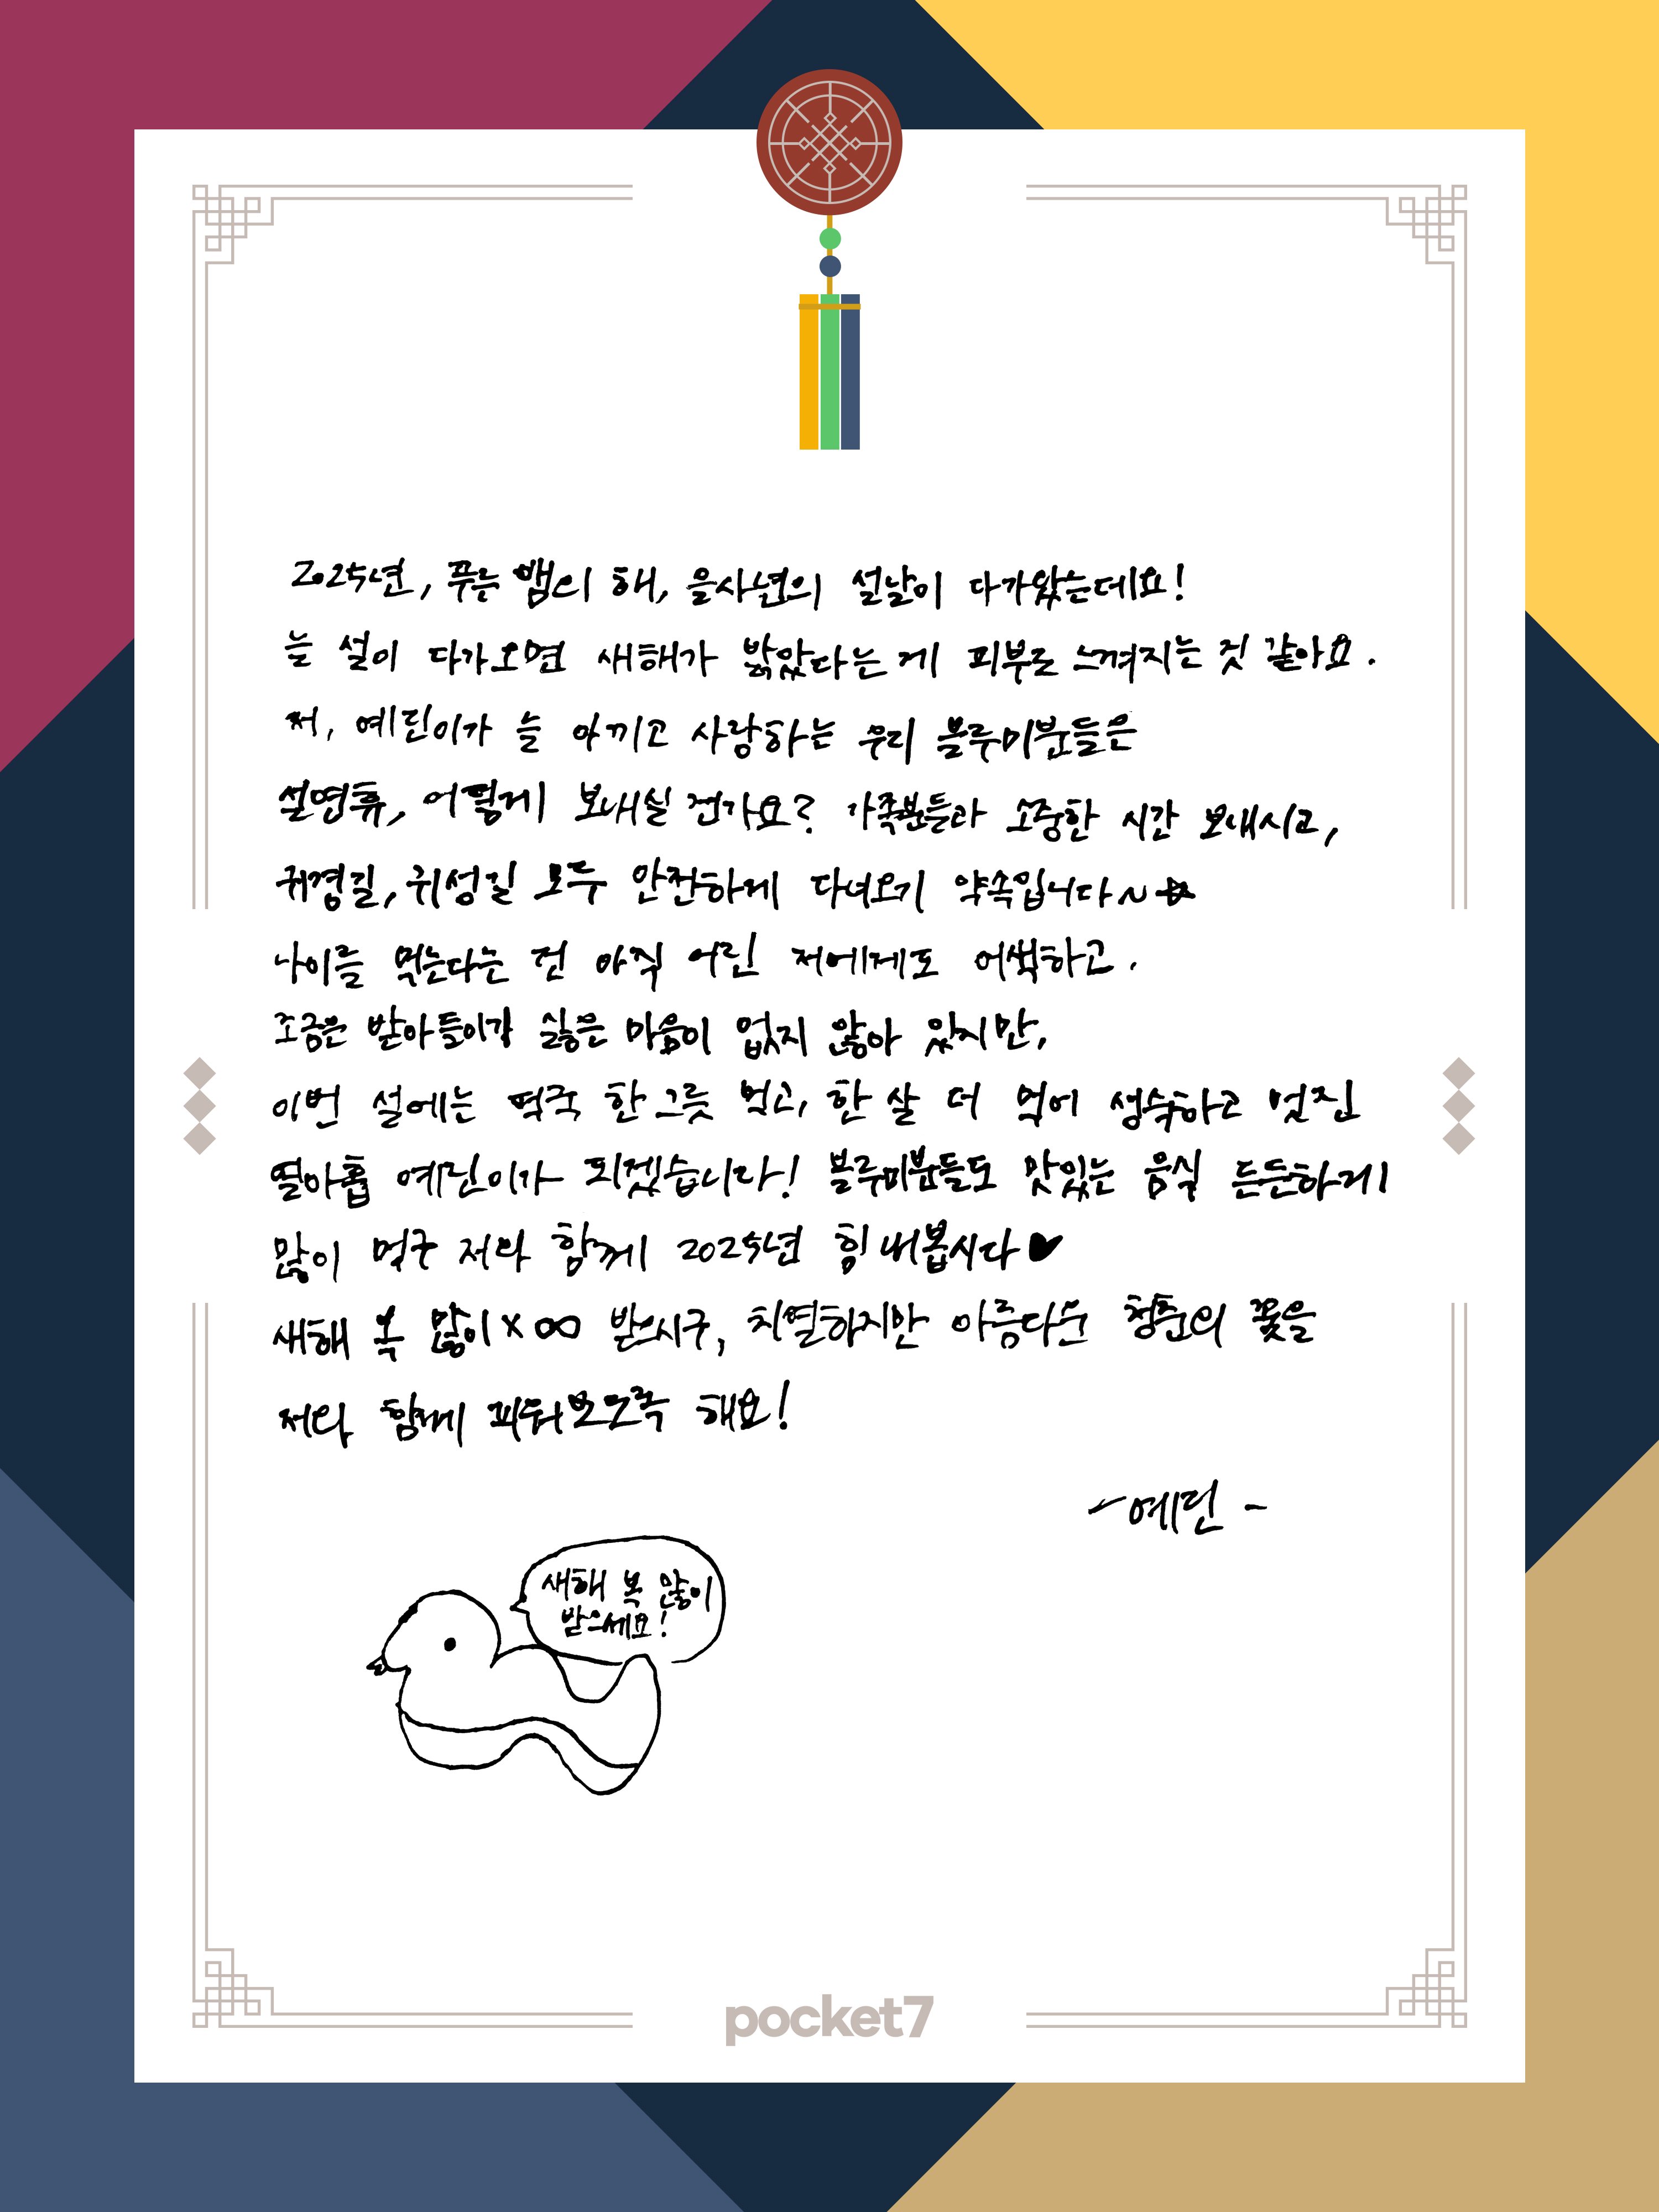 2025년, 푸른 뱀의 해, 을사년의 설날이 다가왔는데요!
늘 설이 다가오면 새해가 밝았다는 게 피부로 느껴지는 것 같아요.
저, 예린이가 늘 아끼고 사랑하는 우리 블루미분들은
설연휴, 어떻게 보내실 건가요? 가족분들과 소중한 시간 보내시고,
귀경길, 귀성길 모두 안전하게 다녀오기 약속입니다~☆
나이를 먹는다는 건 아직 어린 저에게도 어색하고.
조금은 받아들이기 싫은 마음이 없지 않아 있지만,
이번 설에는 떡국 한 그릇 먹고, 한 살 더 먹어 성숙하고 멋진
열아홉 예린이가 되겠습니다! 블루미분들도 맛있는 음식 든든하게
많이 먹구 저와 함께 2025년 힘내봅시다♥
새해 복 많이×∞ 받으시구, 치열하지만 아름다운 청춘의 꽃을
저와 함께 피워보도록 해요!
-예린-
새해 복 많이
받으세요!
pocket7